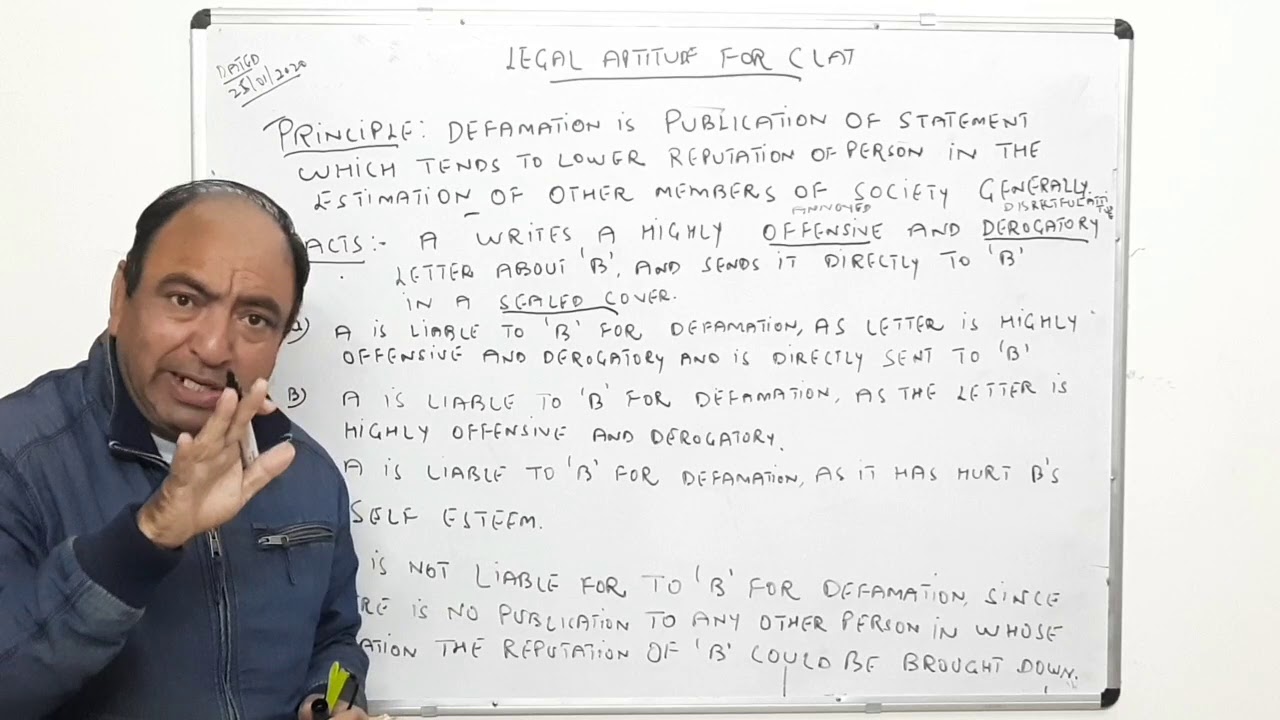 LEGAL APTITUDE FOR CLAT
DATED
25/01/2020
PRINCIPLE: DEFAMATION IS PUBLICATION OF STATEMENT
WHICH TENDS TO LOWER REPUTATION OF PERSON IN THE
ESTIMATION OF OTHER MEMBERS OF SOCIETY GENERALLY.
ANNOYED
ACTS:- A WRITES A HIGHLY OFFENSIVE AND DEROGATORY
LETTER ABOUT 'B', AND SENDS IT DIRECTLY TO 'B'
IN A SEALED COVER.
a) A IS LIABLE TO 'B' FOR DEFAMATION, AS LETTER IS HIGHLY
OFFENSIVE AND DEROGATORY AND IS DIRECTLY SENT TO 'B'
B) A IS LIABLE TO 'B' FOR DEFAMATION, AS THE LETTER IS
HIGHLY OFFENSIVE AND DEROGATORY.
A IS LIABLE TO 'B' FOR DEFAMATION, AS IT HAS HURT B'S
SELF ESTEEM.
IS NOT LIABLE FOR TO 'B' FOR DEFAMATION, SINCE
RE IS NO PUBLICATION TO ANY OTHER PERSON IN WHOSE
ATION THE REPUTATION OF 'B' COULD BE BROUGHT DOWN.